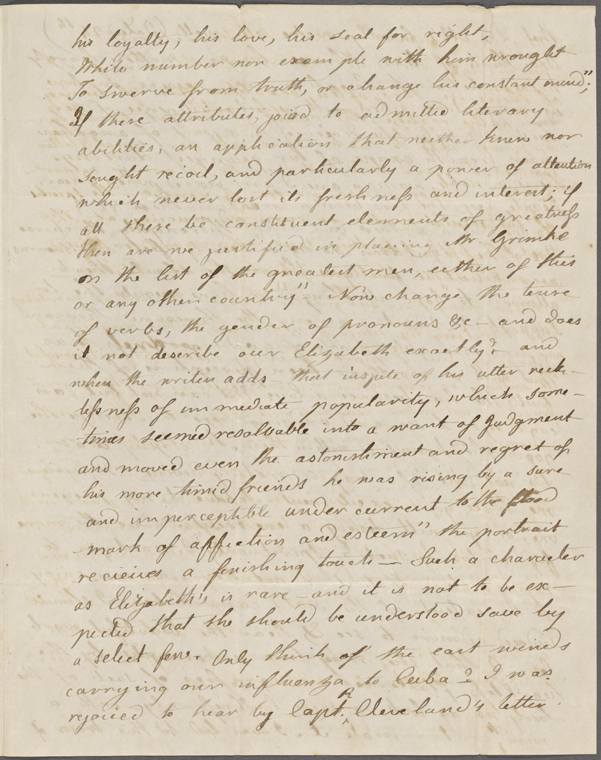 his loyalty, his love, his zeal for right,
While number nor example with him wrought
To swerve from truth, or change his constant mind";
If these attributes, joined to admitted literary
abilities, an application that neither knew nor
sought recoil, and particularly a power of attention
which never lost its freshness and interest; if
all these be constituent elements of greatness
then are we justified in placing Mr Grimké
on the list of the greatest men, either of this
or any other country" Now change the tense
of verbs, the gender of pronouns &c - and does
it not describe our Elizabeth exactly? - and
when the writer adds - that inspite of his utter reck-
lessness of immediate popularity, which some-
times seemed resolvable into a want of Judgment
and moved even the astonishment and regret of
his more timid friends he was rising by a sure
and imperceptible under current to the flood
-mark of affection and esteem" the portrait
recieves a finishing touch - Such a character
as Elizabeth's is rare - and it is not to be ex-
pected that she should be understood save by
a select few. Only think of the east winds
carrying our influenza to Cuba? I was
rejoiced to hear by Capt. R Cleveland's letter.